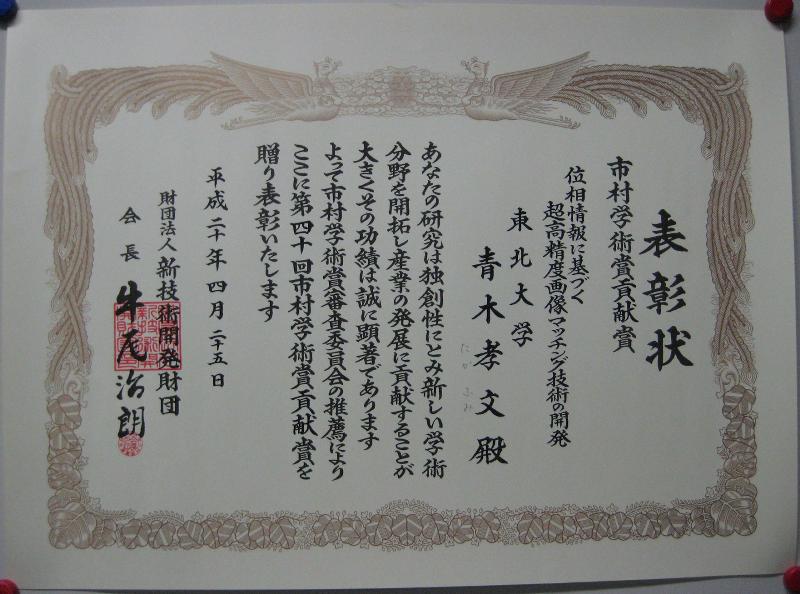 表彰状
市村学術賞貢献賞
位相情報に基づく
超高精度画像マッチング技術の開発
東北大学
青木孝文殿
たか ふみ
あなたの研究は独創性にとみ新しい学術
分野を開拓し産業の発展に貢献することが
大きくその功績は誠に顕著であります
よって市村学術賞審査委員会の推薦により
ここに第四十回市村学術賞貢献賞を
贈り表彰いたします
平成二十年四月二十五日
財団法人新技術開発財団
会長 牛尾治朗